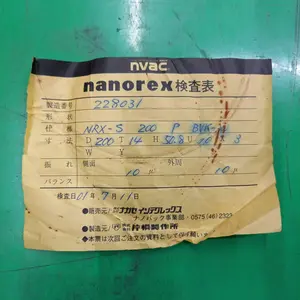 nvac
nanorex 検査表
製造番号 228031
形状
仕様 NRX-S 200 P
寸法 D 200 T 14 H 50.8 U 10 3
W Y
振れ 側面 10 μ 外周 10 μ
バランス
検査日 01年7月11日
●販売元/ ナガセインテグレックス
ナノバック事業部・0575(46)232
●製造元/ 製作所
●本票は次回ご注文の資料として保存願い